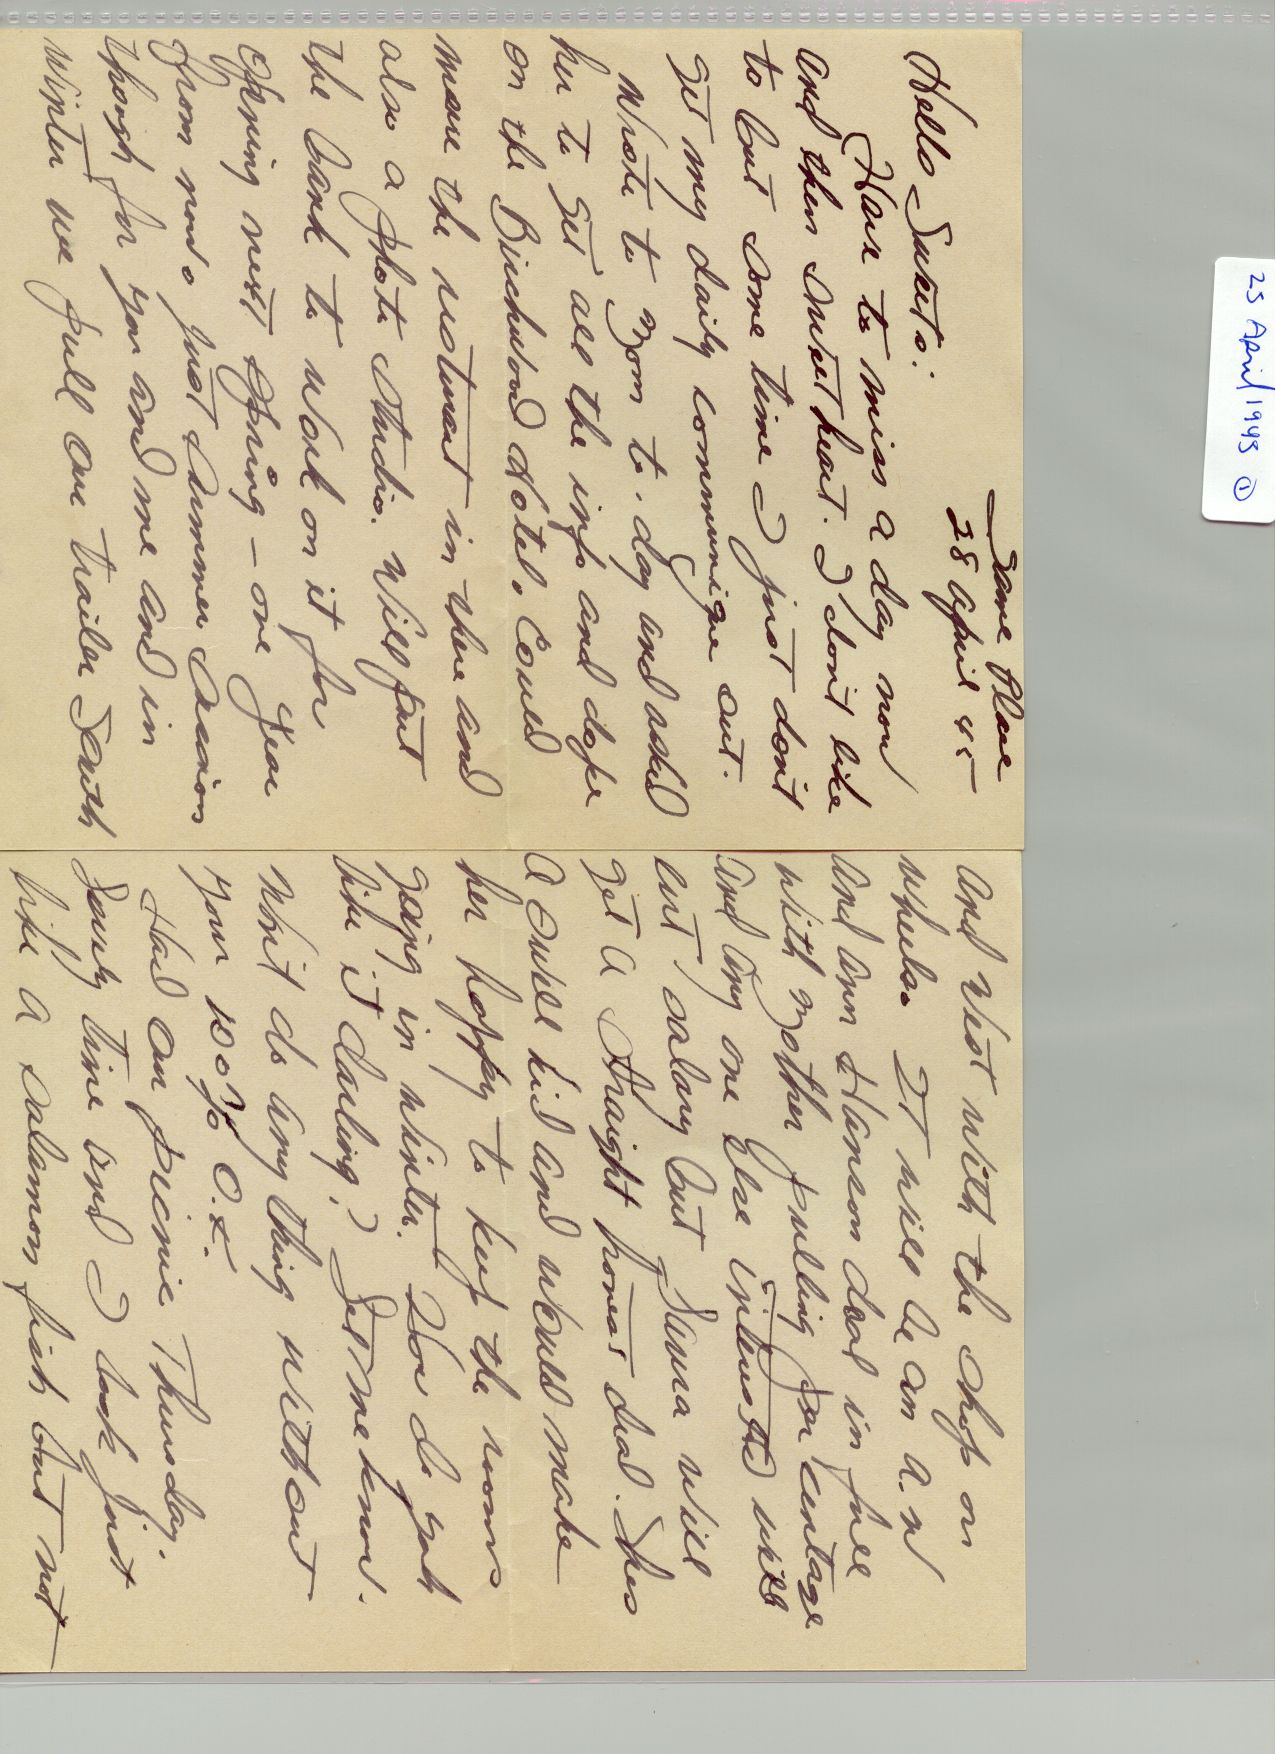 25 April 1945 ①
Same Place
28 April 45
Hello Sweets:
Have to miss a day now
and then sweetheart. I don't like
to but some time I just don't
get my daily communique out.
Wrote to Mom to-day and asked
her to get all the info and dope
on the Birchwood Hotel. Could
move the resturant in there and
also a photo studio. Will put
the bank to work on it for
opening next spring - one year
from now. Just summer season
though for you and me and in
winter we pull our trailer South
and West with the chop on
wheels. It will be an A.N
and Ann Hanson deal in full
with Mother pulling per centage
and any one else interested will
cut salary but Juura will
get a straight power deal. Shes
a swell kid and would make
her happy to keep the rooms
going in winter. How do you
like it darling? Let me know.
Won't do any thing without
your 100% O.K.
Had our picnic Thursday.
Lovely time and I look just
like a salamon fish but not